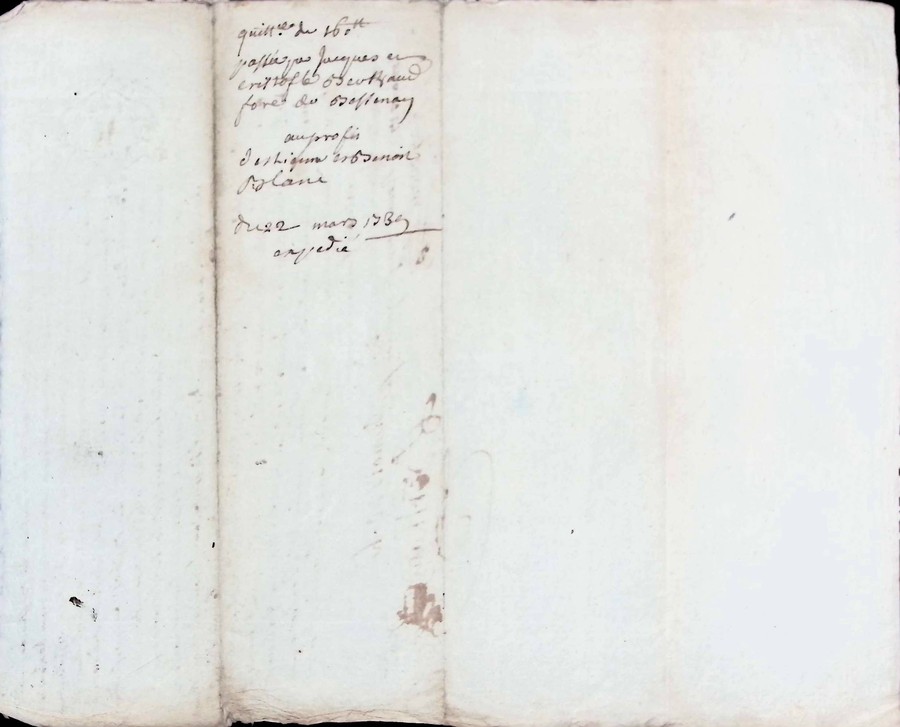 quitt.ce de 16 tt
passée par Jacques et
cristofle Berthaud
fore de Bessenay
au profit
de Benoit
Blanc
du 22 mars 1789
expedié